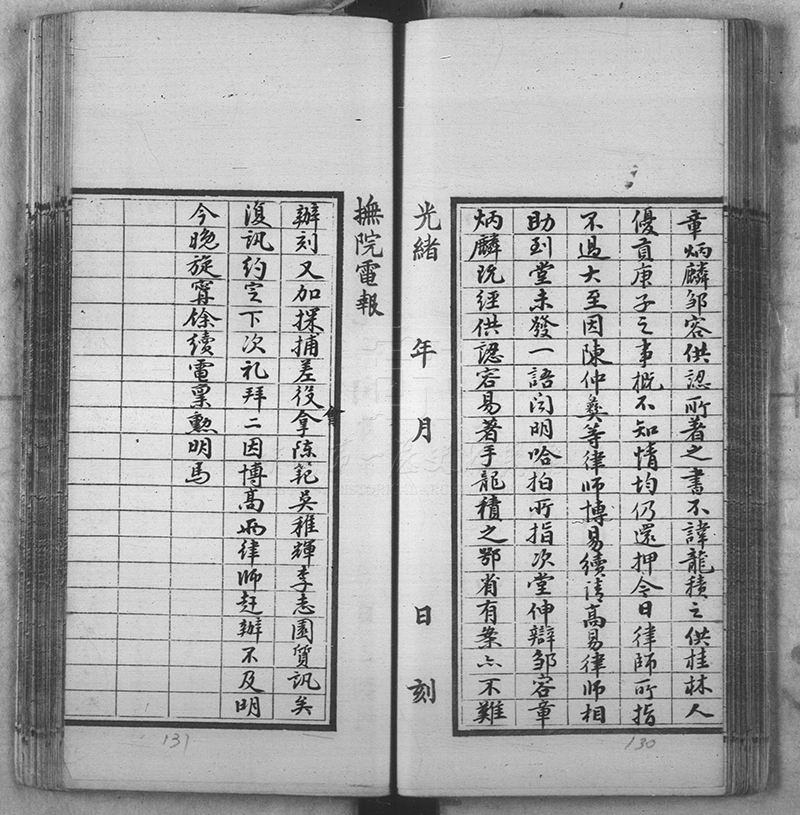 章炳麟鄒容供認所著之書不諱龍積之供桂林人
優貢庚子之事概不知情均仍還押今日律師所指
不過大至因陳仲彝等律師博易續請高易律師相
助到堂未發一語閔明哈拍所指次堂伸辯鄒容章
炳麟既經供認容易著手龍積之鄂省有案亦不難
光緒 年 月 日 刻
撫院電報
辦刻又加採捕差役會拿陈範吳稚輝李志園質訊矣
復訊約定下次礼拜二因博高兩律師赶辦不及明
今晚旋甯餘續電稟勲明馬
130
131